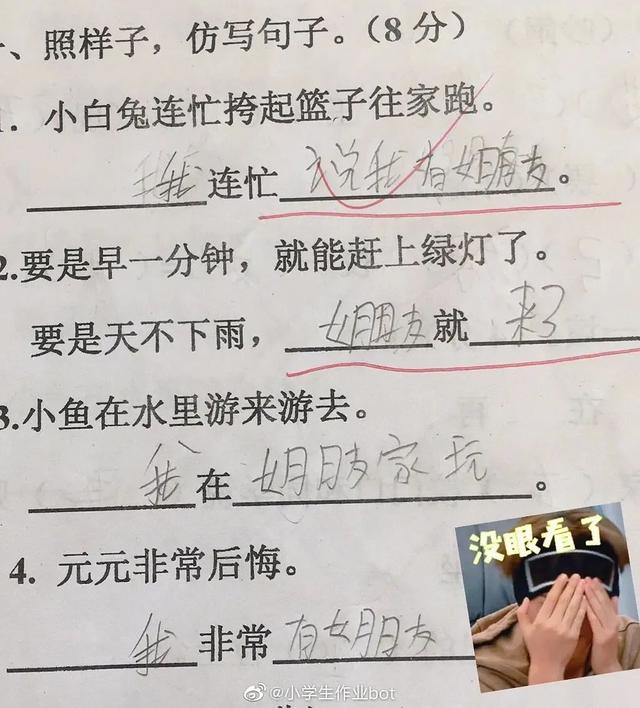 一、照样子，仿写句子。（8分）
1. 小白兔连忙挎起篮子往家跑。
我连忙说我有女朋友。
2.要是早一分钟，就能赶上绿灯了。
要是天不下雨，女朋友就来了
3.小鱼在水里游来游去。
我在女朋友家玩。
没眼看了
4. 元元非常后悔。
我非常有女朋友
@小学生作业bot